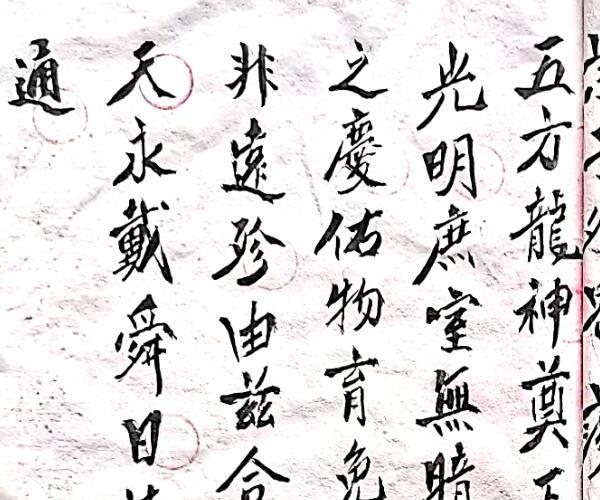 五方龍神奠
光明庶室無暗
之慶佑物育免
非遠珍由茲合
天永戴舜日
通